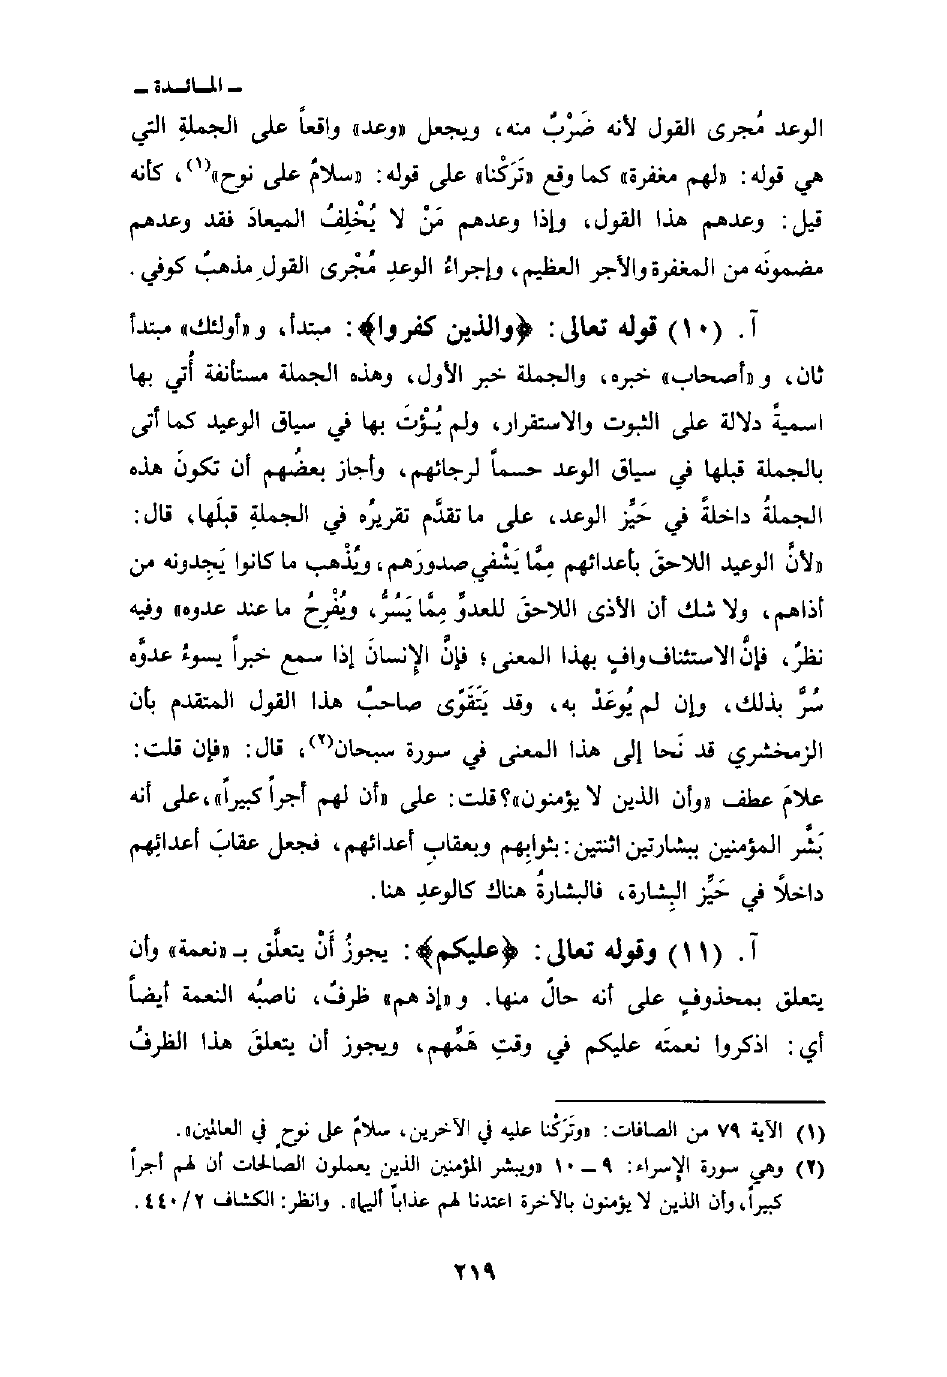 ـ المائدة ـ
الوعد مُجرى القول لأنه ضَرْبٌ منه، ويجعل «وعد» واقعاً على الجملةِ التي
هي قوله: «لهم مغفرة» كما وقع «تَرَكْنا» على قوله: «سلامٌ على نوح»(١)، كأنه
قيل: وعدهم هذا القول، وإذا وعدهم مَنْ لا يُخْلِفُ الميعادَ فقد وعدهم
مضمونَه من المغفرة والأجر العظيم، وإجراءُ الوعدِ مُجْرى القولِ مذهبٌ كوفي.
آ. (١٠) قوله تعالى: ﴿والذين كفروا﴾: مبتدأ، و «أولئك» مبتدأ
ثان، و «أصحاب» خبره، والجملة خبر الأول، وهذه الجملة مستأنفة أُتي بها
اسميةً دلالة على الثبوت والاستقرار، ولم يُؤْتَ بها في سياق الوعيد كما أتى
بالجملة قبلها في سياق الوعد حسماً لرجائهم، وأجاز بعضُهم أن تكونَ هذه
الجملةُ داخلةً في حَيِّز الوعد، على ما تقدَّم تقريرُه في الجملةِ قبلَها، قال:
«لأنَّ الوعيد اللاحقَ بأعدائهم مِمَّا يَشْفي صدورَهم، ويُذْهب ما كانوا يَجِدونه من
أذاهم، ولا شك أن الأذى اللاحقَ للعدوِّ مِمَّا يَسُرُّ، ويُفْرِحُ ما عند عدوه» وفيه
نظرٌ، فإنَّ الاستئناف وافٍ بهذا المعنى؛ فإنَّ الإِنسانَ إذا سمع خبراً يسوءُ عدوَّه
سُرَّ بذلك، وإن لم يُوعَدْ به، وقد يَتَقَوَّى صاحبُ هذا القول المتقدم بأن
الزمخشري قد نَحا إلى هذا المعنى في سورة سبحان(٢)، قال: «فإن قلت:
علامَ عطف «وأن الذين لا يؤمنون»؟ قلت: على «أن لهم أجراً كبيراً»، على أنه
بَشَّر المؤمنين ببشارتين اثنتين: بثوابِهم وبعقابِ أعدائهم، فجعل عقابَ أعدائِهم
داخلاً في حَيِّز البِشارة، فالبشارةُ هناك كالوعدِ هنا.
آ. (١١) وقوله تعالى: ﴿عليكم﴾: يجوزُ أَنْ يتعلَّق بـ «نعمة» وأن
يتعلق بمحذوفٍ على أنه حالٌ منها. و «إذ هم» ظرفٌ، ناصبُه النعمة أيضاً
أي: اذكروا نعمتَه عليكم في وقتِ هَمِّهم، ويجوز أن يتعلقَ هذا الظرفُ
(١) الآية ٧٩ من الصافات: «وتَرَكْنا عليه في الآخرين، سلامٌ على نوحٍ في العالمين».
(٢) وهي سورة الإسراء: ٩ ـ ١٠ «ويبشر المؤمنين الذين يعملون الصالحات أن لهم أجراً
كبيراً، وأن الذين لا يؤمنون بالآخرة اعتدنا لهم عذاباً أليماً». وانظر: الكشاف ٢/٤٤٠.
٢١٩